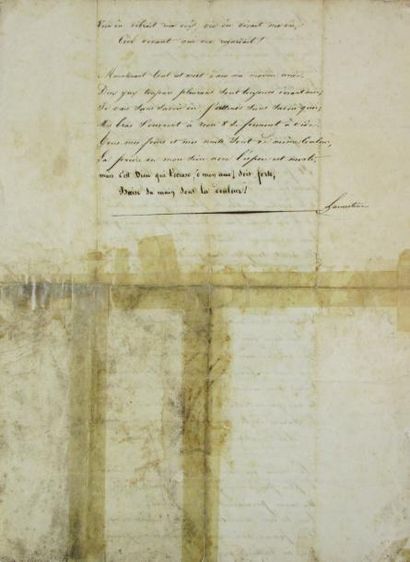 Voix où vibrait ma voix, vie où vivait ma vie,
Ciel vivant qui me regardait !
Maintenant tout est mort dans ma maison aride,
Deux yeux toujours pleurant sont toujours devant moi,
Je vais sans savoir où, j'attends sans savoir quoi,
Mes bras s'ouvrent à rien & se ferment à vide.
Tous mes jours et mes nuits sont de même couleur,
La prière en mon sein avec l'espoir est morte,
mais c'est Dieu qui t'écrase, ô mon âme, sois forte,
Baise sa main sous la douleur !
Lamartine